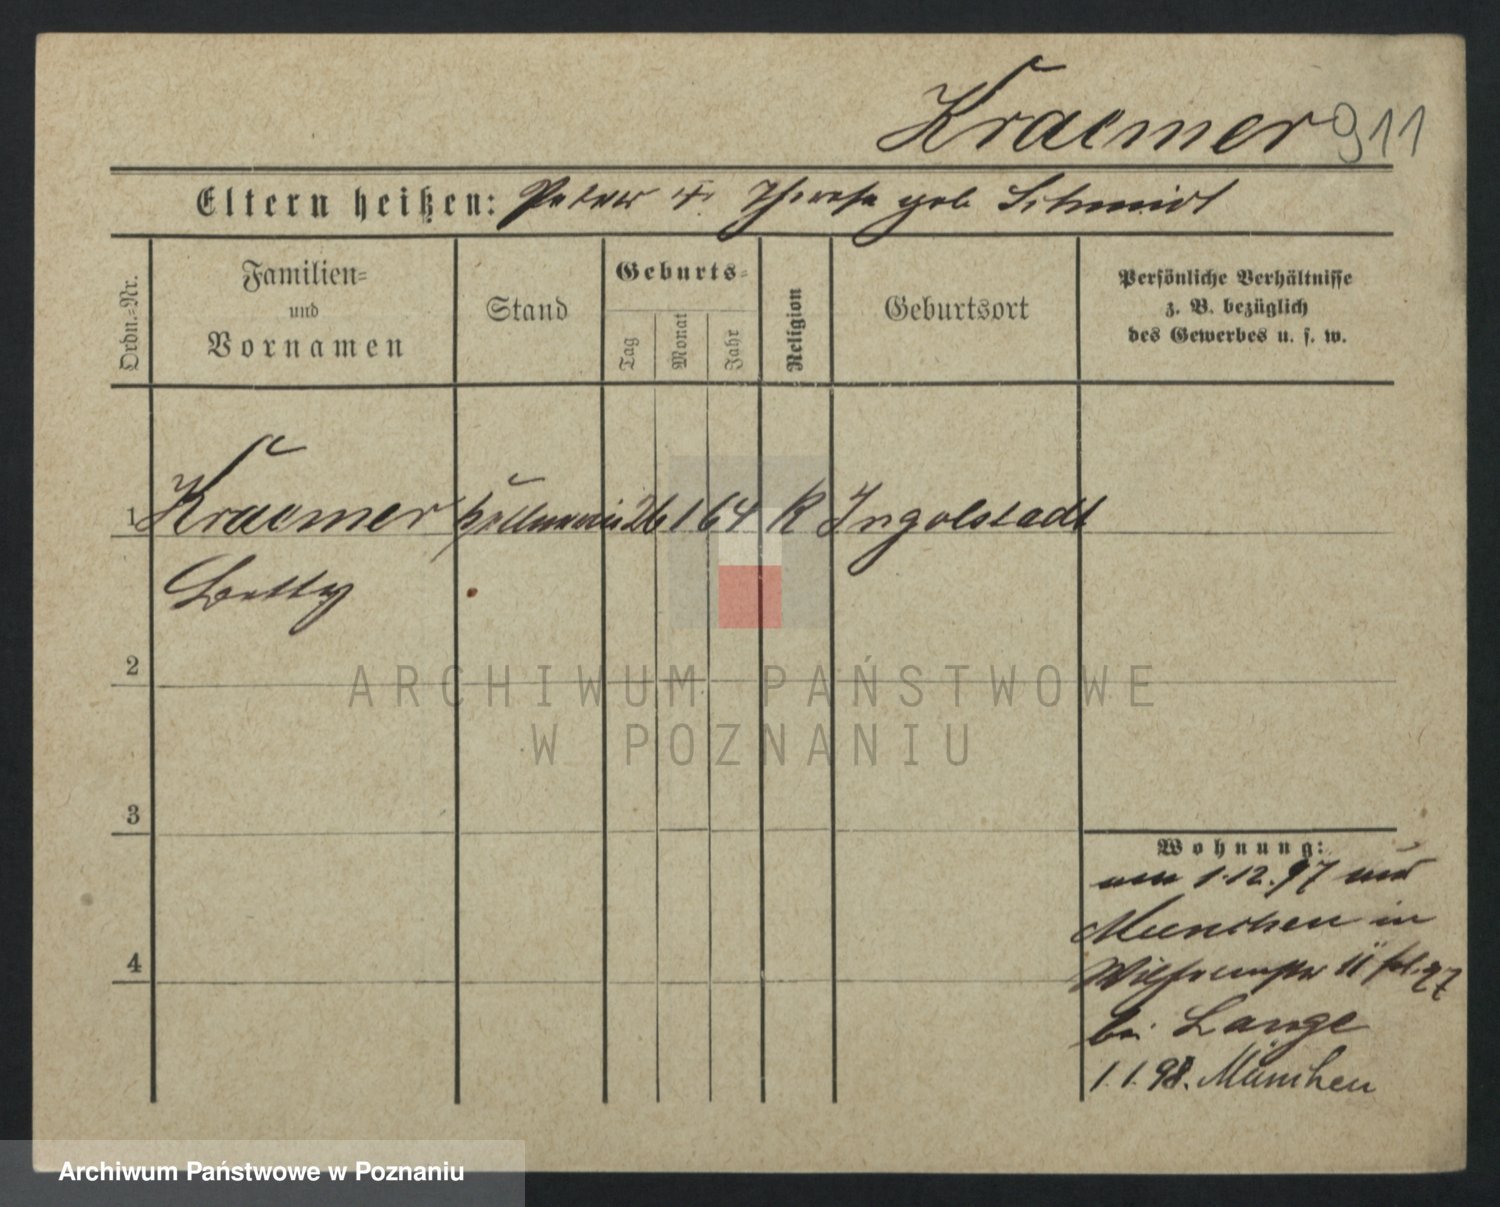 Kraemer 911
Eltern heißen: Peter u. Therese geb. Schmidt
Ordn.-Nr.
Familien-
und
Vornamen
Stand
Geburts-
Tag
Monat
Jahr
Religion
Geburtsort
Persönliche Verhältnisse
z. B. bezüglich
des Gewerbes u. s. w.
1 Kraemer Kellnerin 26 1 64 K Ingolstadt
Betty
2
ARCHIWUM PAŃSTWOWE
W POZNANIU
3
Wohnung:
1.12.97 aus
Muenchen in
11
bei Lange
1.1.98. München
4
Archiwum Państwowe w Poznaniu